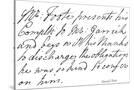 Mr. Foote presents his
Compts to Mr. Garrick
and begs with his thanks
to discharge the obligation
he was so kind to confer
on him.